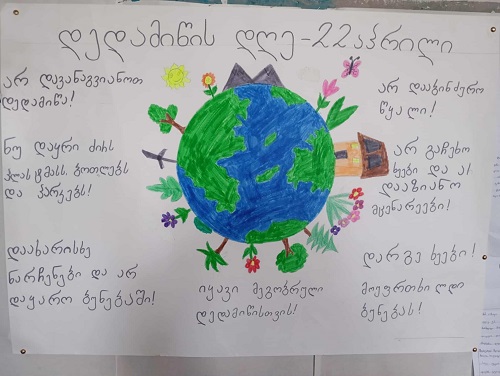 დედამიწის დღე-22 აპრილი
არ დავანაგვიანოთ
დედამიწა!
ნუ დაყრი ძირს
პლასტმასს, ბოთლებს
და პარკებს!
დაახარისხე
ნარჩენები და არ
დაყარო ბუნებაში!
იყავი მეგობრული
დედამიწისთვის!
არ დააბინძურო
წყალი!
არ გაჩეხო
ხეები და არ
დააზიანო
მცენარეები!
დარგე ხეები!
მოეფრთხილდი
ბუნებას!